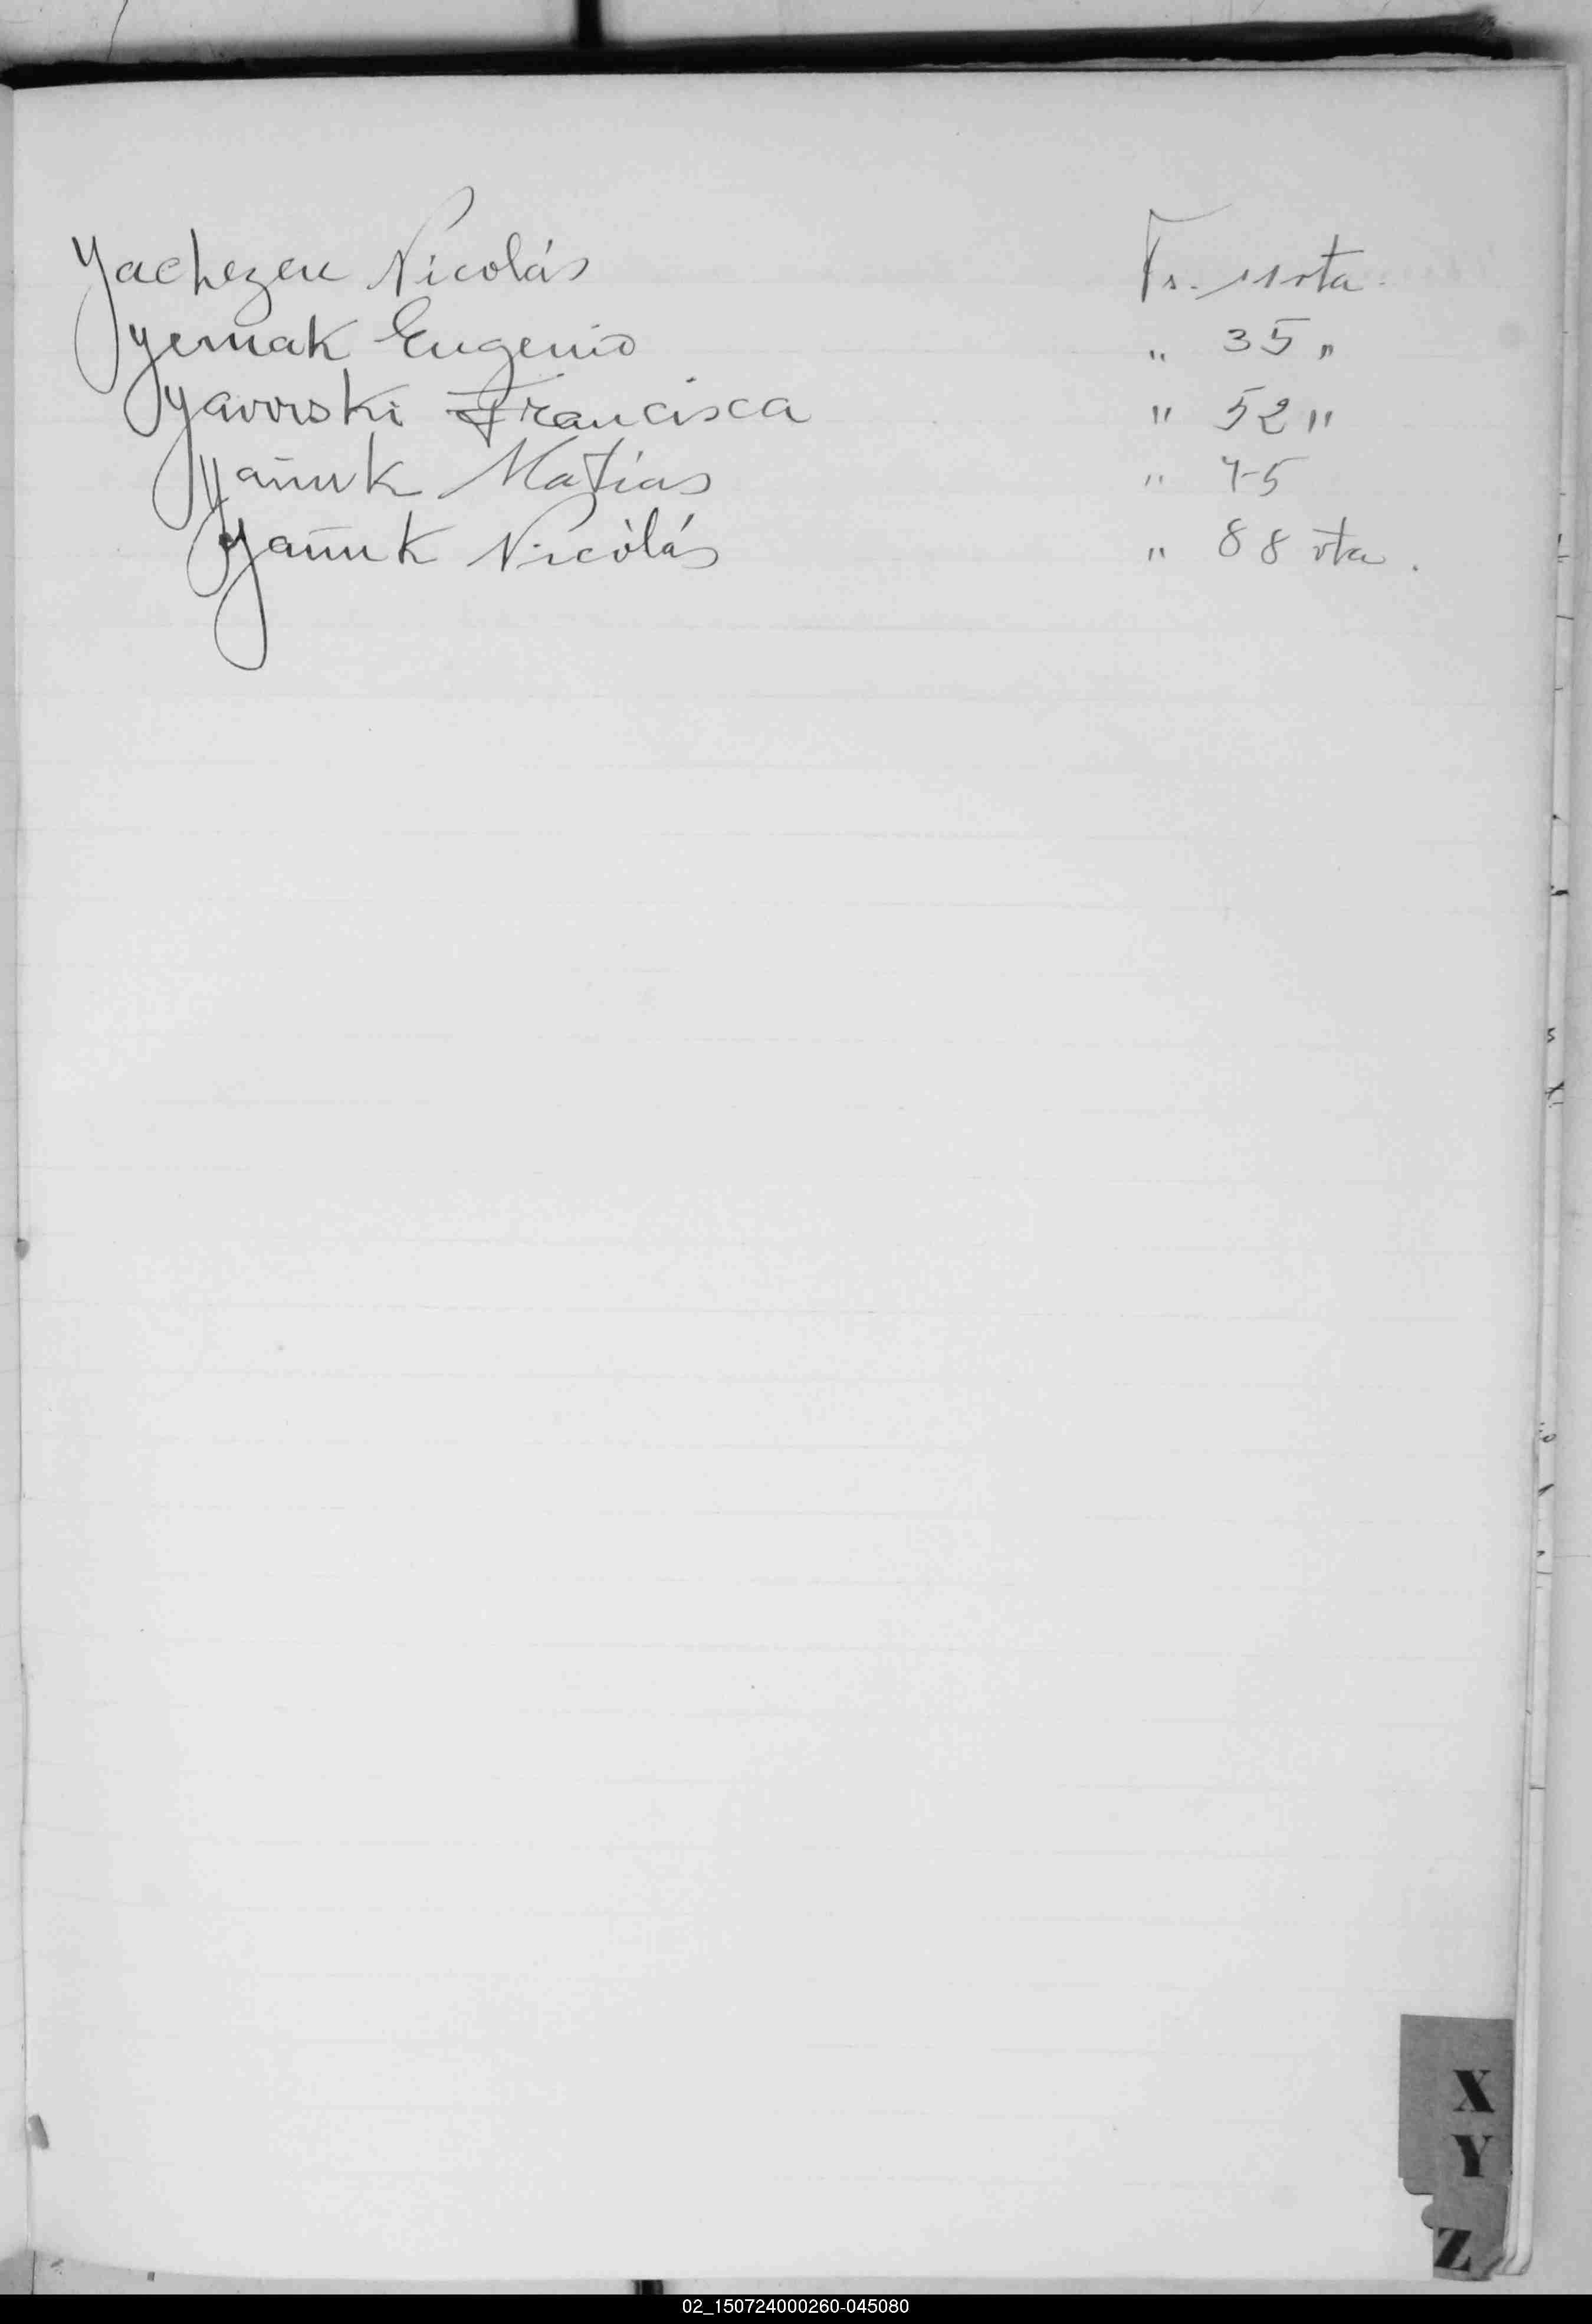 Yachezen Nicolás Fs. 11 vta.
Yermak Eugenio " 35 "
Yavorski Francisca " 52 "
Yañuk Matias " 75
Yañuk Nicolás " 88 vta.
X
Y
Z
02_150724000260-045080